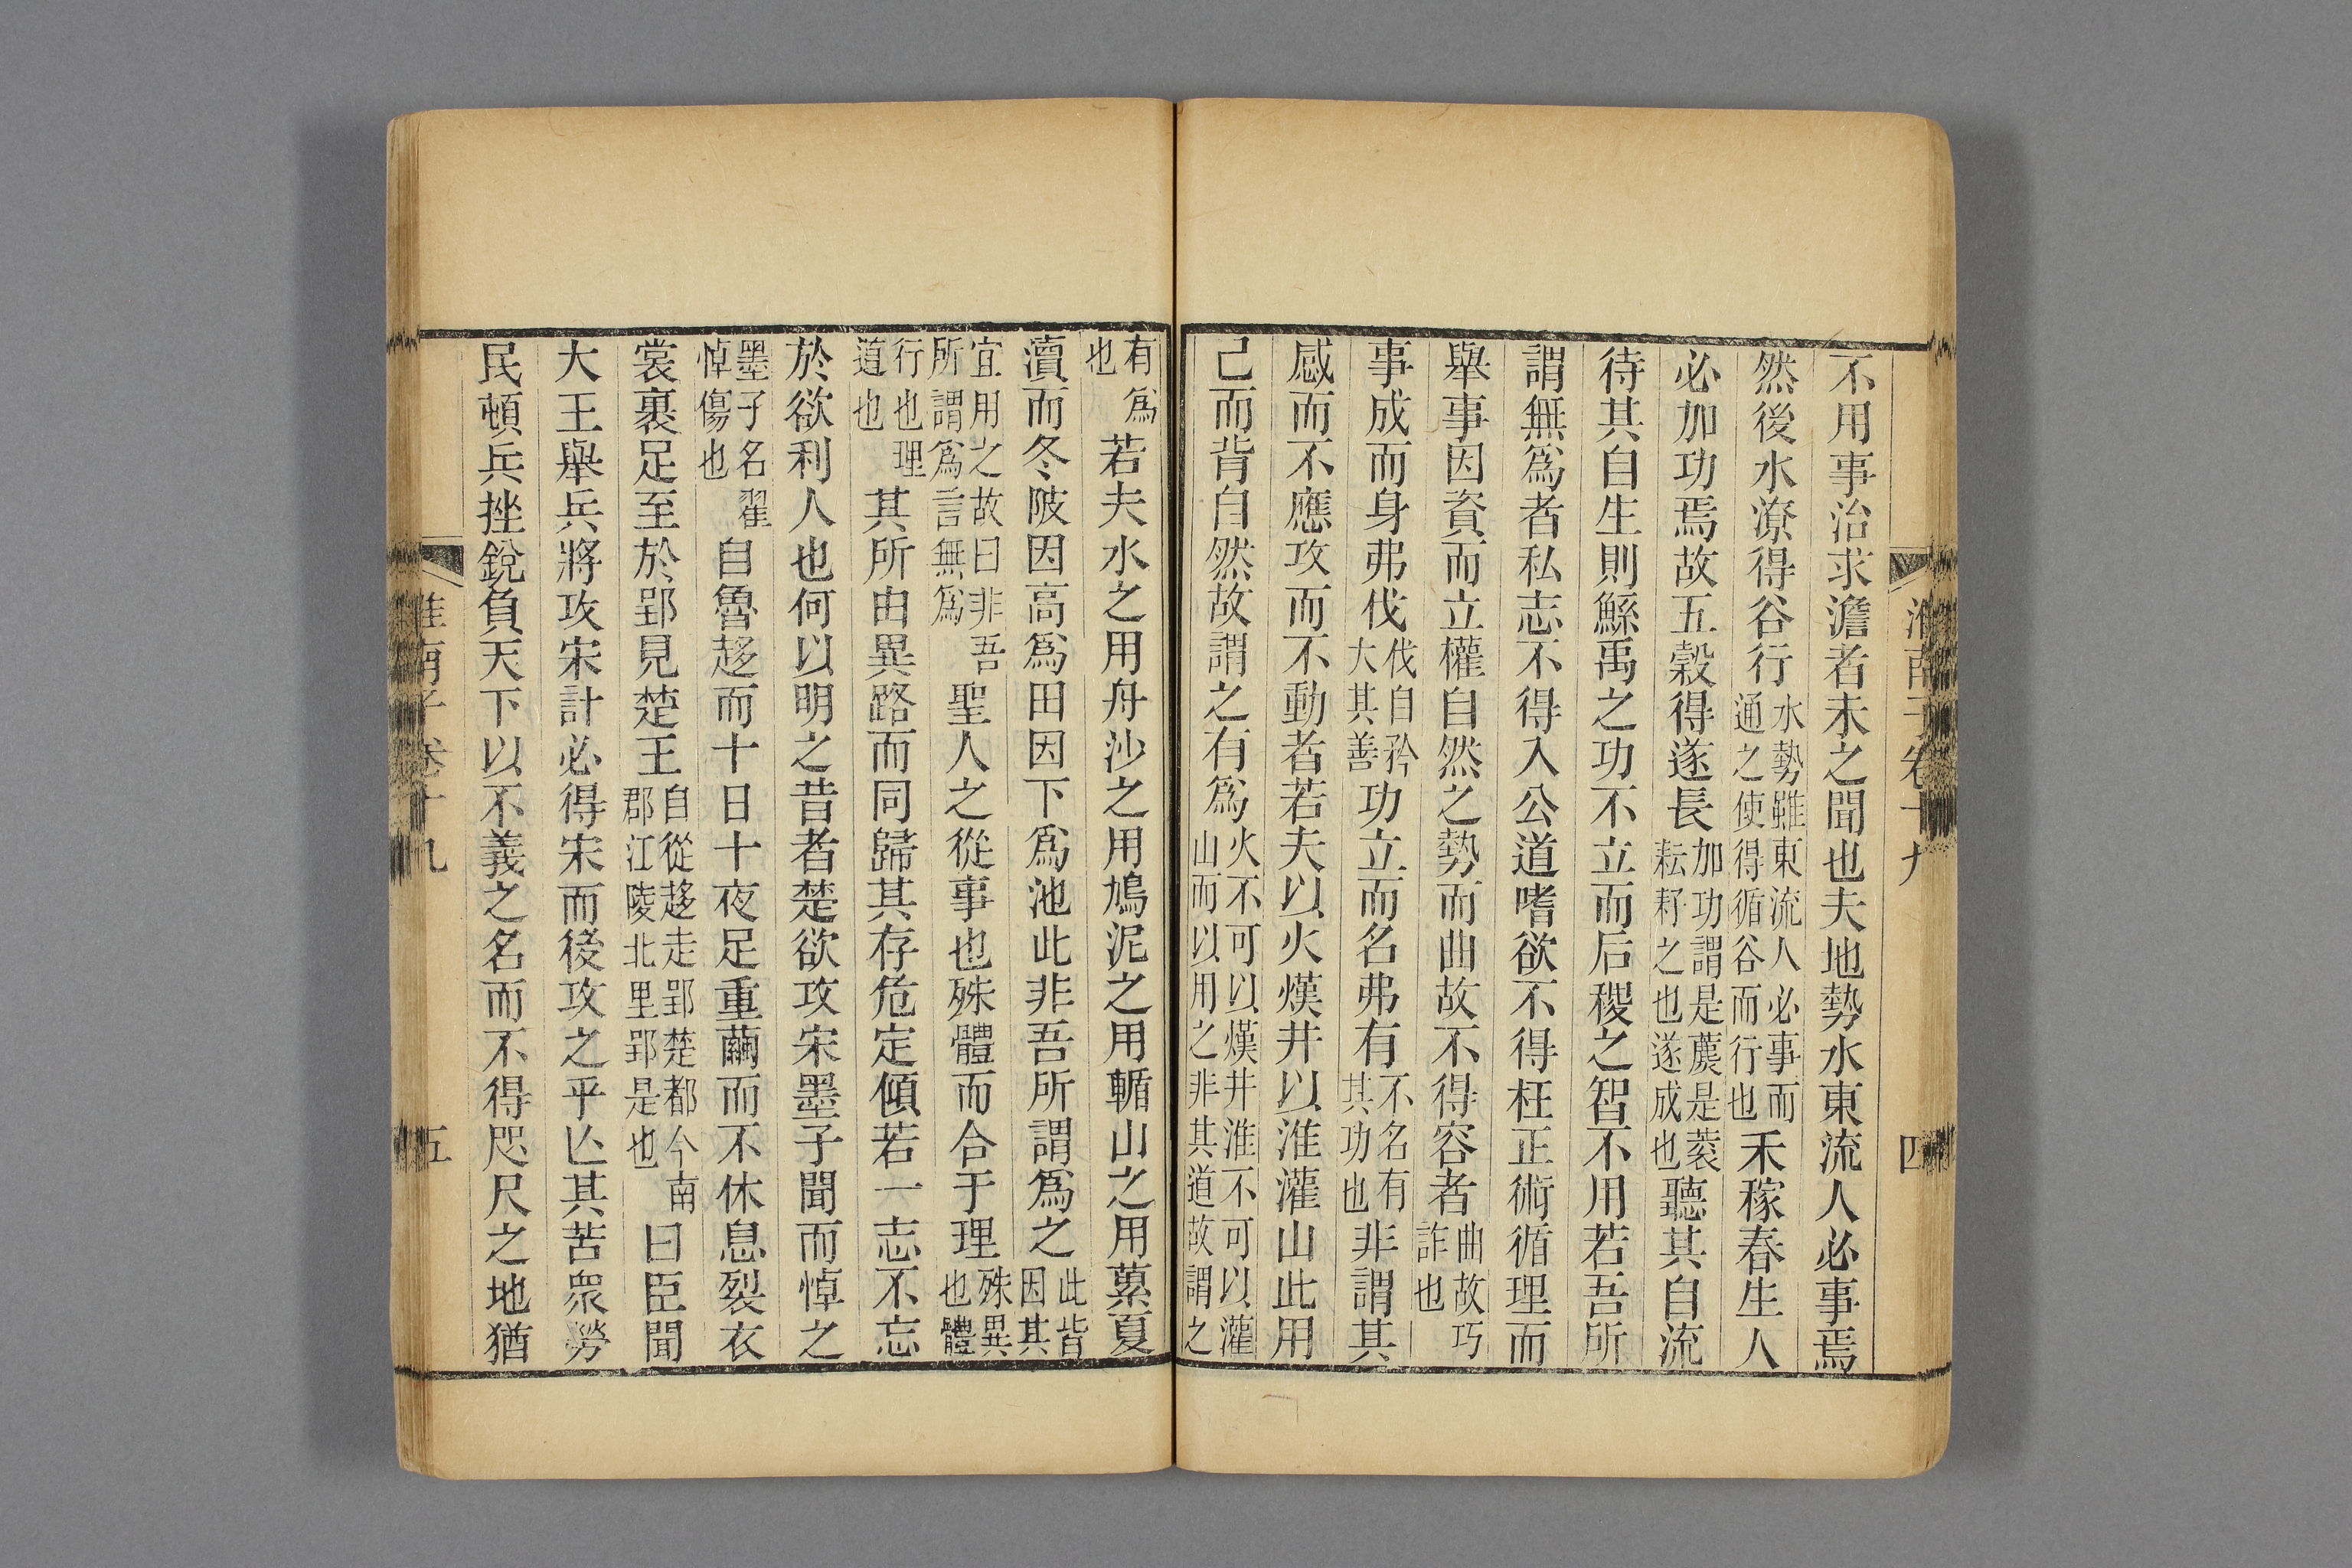 淮南子卷十九 四
不用事治求澹者未之聞也夫地勢水東流人必事焉
然後水潦得谷行水勢雖東流人必事而通之使得循谷而行也禾稼春生人
必加功焉故五穀得遂長加功謂是藨是蔉耘耔之也遂成也聽其自流
待其自生則鯀禹之功不立而后稷之智不用若吾所
謂無爲者私志不得入公道嗜欲不得枉正術循理而
舉事因資而立權自然之勢而曲故不得容者曲故巧詐也
事成而身弗伐伐自矜大其善功立而名弗有不名有其功也非謂其
感而不應攻而不動者若夫以火熯井以淮灌山此用
己而背自然故謂之有爲火不可以熯井淮不可以灌山而以用之非其道故謂之
有爲也若夫水之用舟沙之用鳩泥之用輴山之用蔂夏
瀆而冬陂因高爲田因下爲池此非吾所謂爲之此皆因其
宜用之故曰非吾所謂爲言無爲聖人之從事也殊體而合于理殊異也體
行也理道也其所由異路而同歸其存危定傾若一志不忘
於欲利人也何以明之昔者楚欲攻宋墨子聞而悼之
墨子名翟悼傷也自魯趍而十日十夜足重繭而不休息裂衣
裳裹足至於郢見楚王自從趍走郢楚都今南郡江陵北里郢是也曰臣聞
大王舉兵將攻宋計必得宋而後攻之乎亾其苦衆勞
民頓兵挫銳負天下以不義之名而不得咫尺之地猶
淮南子卷十九 五